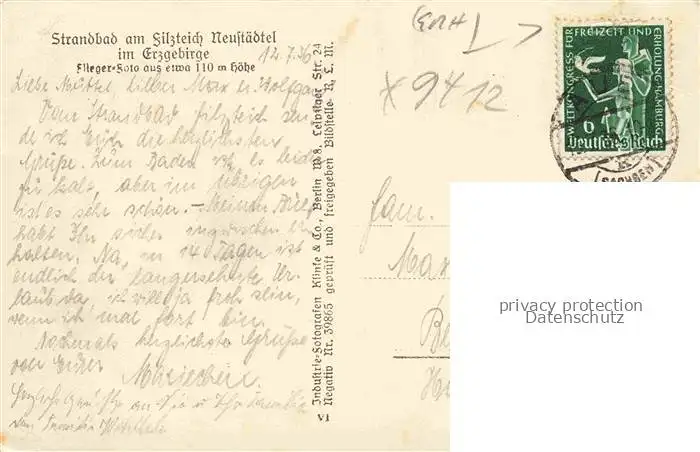 Strandbad am Filzteich Neustädtel
im Erzgebirge
Flieger-Foto aus etwa 110 m Höhe
12.7.36
Liebe Mutter, lieber Max u. Wolfgang
Vom Strandbad Filzteich sen-
de ich Euch die herzlichsten
Grüße. Zum Baden ist es leider
zu kalt, aber im übrigen
ist es sehr schön. - Meinen Brief
habt Ihr sicher inzwischen er-
halten. Na, in 14 Tagen ist
endlich der langersehnte Ur-
laub da, ich will ja froh sein,
wenn ich mal fort bin.
Nochmals herzlichste Grüße
von Eurer
Mariechen.
an Sie u. Ihre Familie
von Familie
Industrie-Fotografen Klinke & Co., Berlin W 8, Leipziger Str. 24
Negativ Nr. 39865 geprüft und freigegeben Bildstelle R. L. M.
VI
x 9412
WELTKONGRESS FÜR FREIZEIT UND ERHOLUNG HAMBURG
6
Deutsches Reich
(SACHSEN)
Fam.
Max
Be
privacy protection
Datenschutz